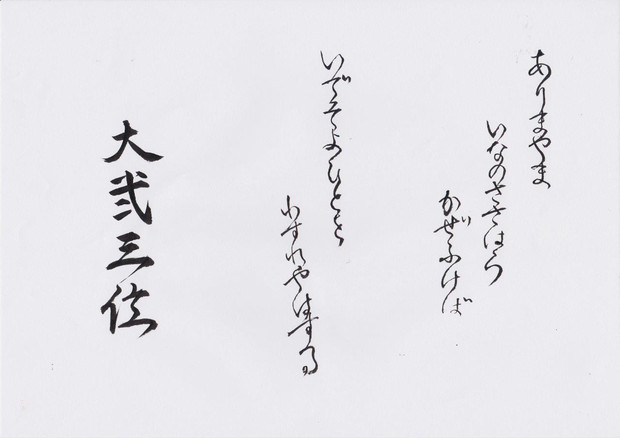 ありまやま
いなのささはら
かぜふけば
いでそよひとを
わすれやはする
大弐三位